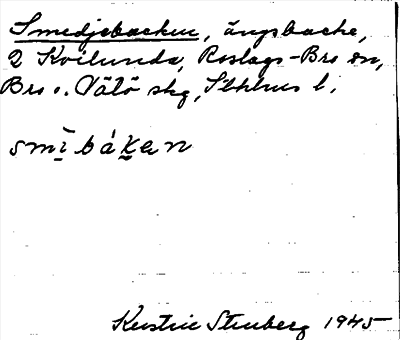 Smedjebacken, ängsbacke,
2 Kvilunda, Roslags-Bro sn,
Bro o. Vätö skg, Sthlms l.
smìbákan
Kerstin Stenberg 1945